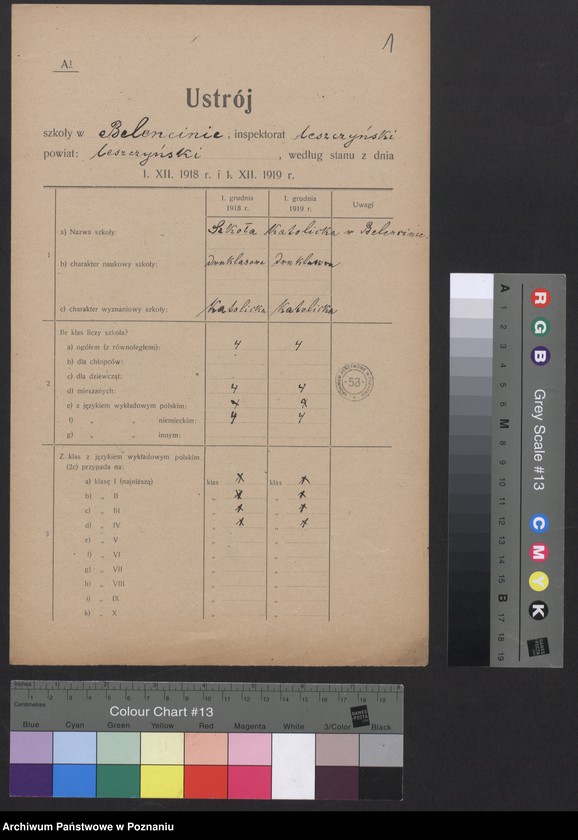 1
A¹
Ustrój
szkoły w Belencinie, inspektorat leszczyński
powiat: leszczyński, według stanu z dnia
1. XII. 1918 r. i 1. XII. 1919 r.
1. grudnia 1918 r. 1. grudnia 1919 r. Uwagi
1
a) Nazwa szkoły: Szkoła Katolicka w Belencinie.
b) charakter naukowy szkoły: dwuklasowa dwuklasowa
c) charakter wyznaniowy szkoły: Katolicka Katolicka
2
Ile klas liczy szkoła?
a) ogółem (z równoległemi): 4 4
b) dla chłopców:
c) dla dziewcząt:
d) mieszanych: 4 4
e) z językiem wykładowym polskim:
f) „ „ niemieckim: 4 4
g) „ „ innym:
53
3
Z klas z językiem wykładowym polskim
(2e) przypada na:
a) klasę I (najniższą) klas x klas x
b) „ II „ x „ x
c) „ III „ x „ x
d) „ IV „ x „ x
e) „ V „ „
f) „ VI „ „
g) „ VII „ „
h) „ VIII „ „
i) „ IX „ „
k) „ X „ „
Grey Scale #13
R G B C M Y K
A 1 2 3 4 5 6 M 8 9 10 11 12 13 14 15 B 17 18 19
Inches
Centimetres
Colour Chart #13
Blue Cyan Green Yellow Red Magenta White 3/Color Black
Archiwum Państwowe w Poznaniu